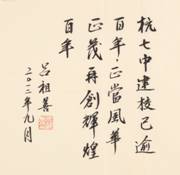 杭七中建校已逾
百年，正當風華
正茂再創輝煌
百年
吕祖善
年九月